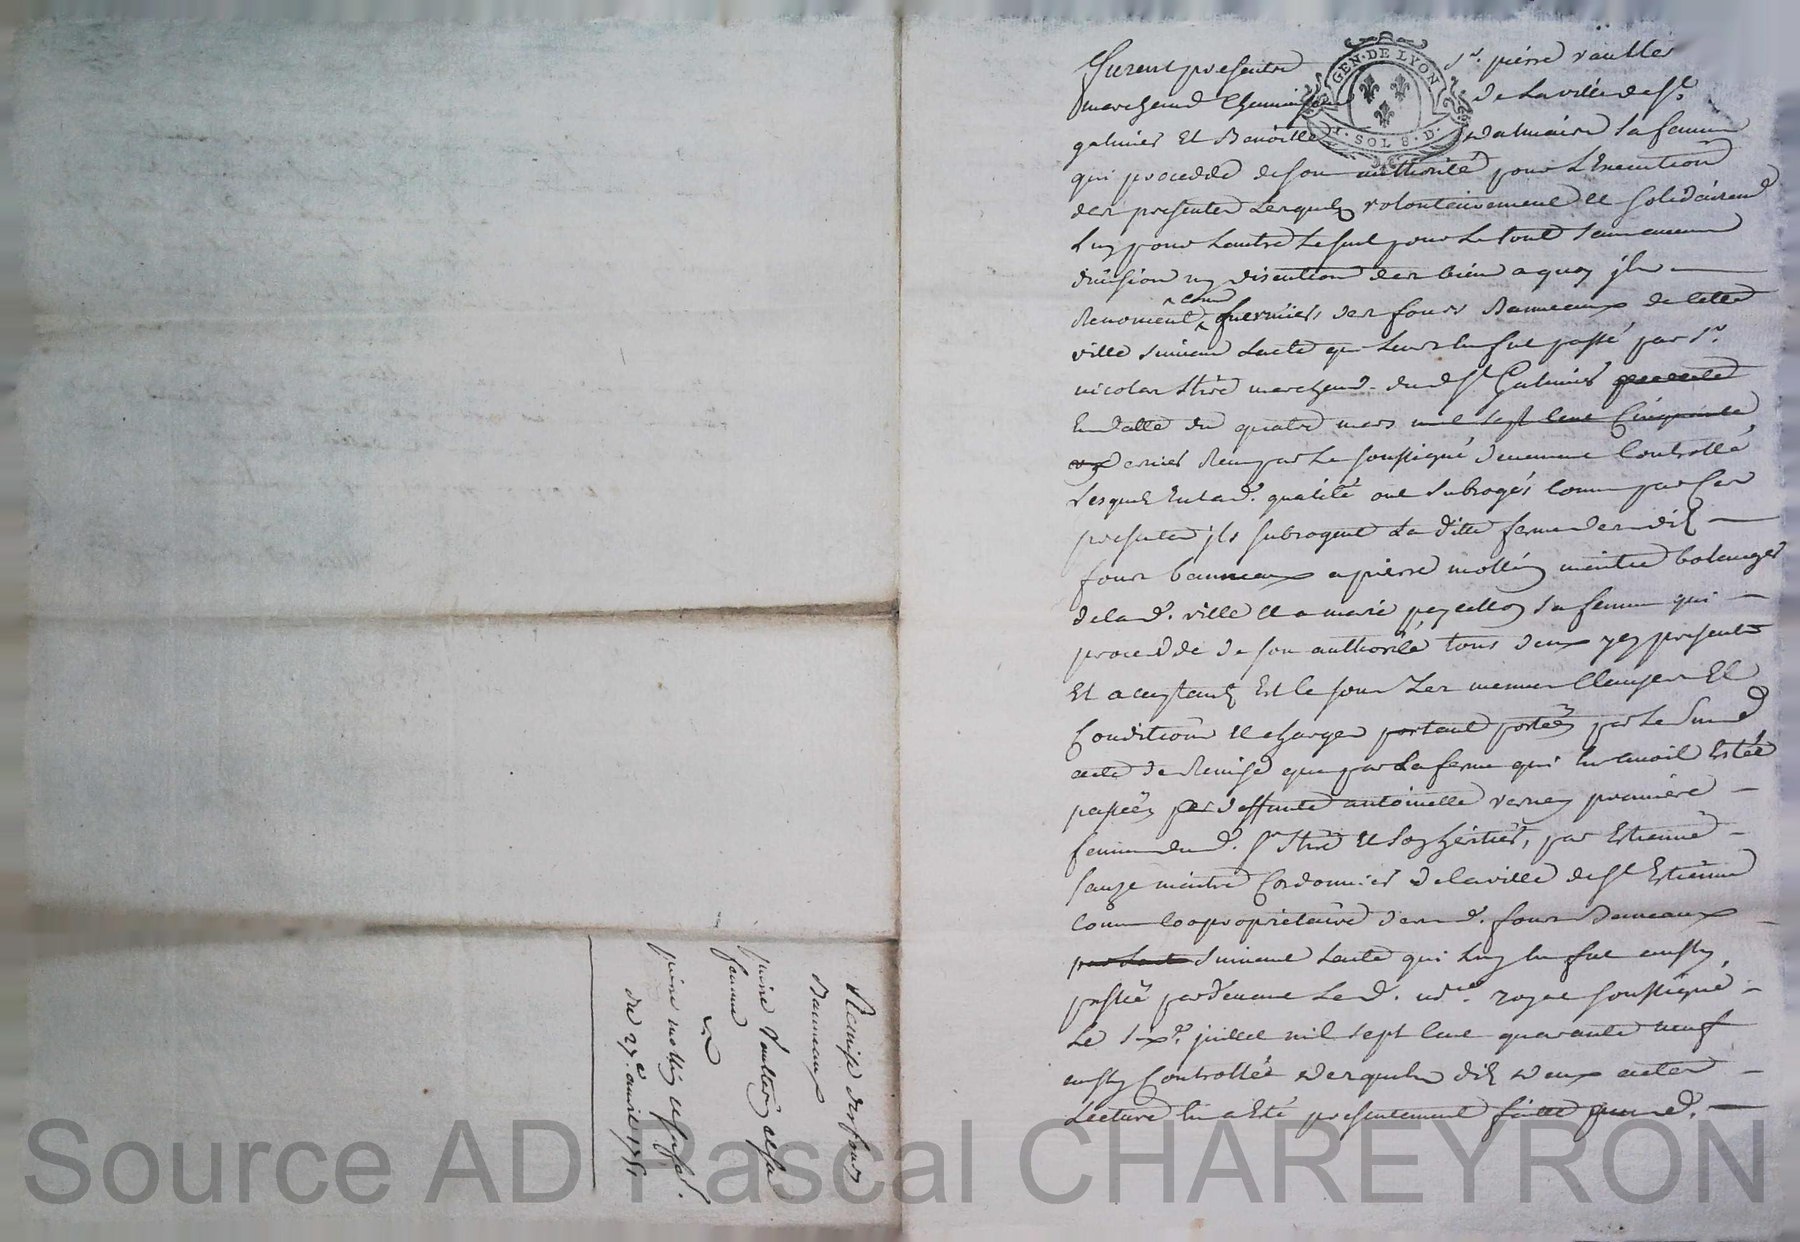 Furent presentre sr. pierre vaultier
marchand de la ville de St.
galmier Et Benoitte dalmaire sa femme
qui procedde de son authorité pour L'Execution
des presentes Lesquels volontairement et solidairem
L'un pour Lautre Le seul pour Le tout sans aucune
division ny discution des biens a quoy ils
Renoncent comme fuermiers des fours Banneaux de cette
ville suivant Lacte qui Leur en fut passé par Sr.
nicolas Stiré marchand dud St Galmier
En datte du quatre mars mil sept cent Cinquante
dernier Reçu par Le soussigné deuement Controllé
Lesquels En lad. qualité ont subrogés comme par Ces
presentes ils subrogent La ditte ferme des dits
fours banneaux a pierre mollin maitre bolanger
de la d. ville Et a marie peycellon sa femme qui
procedde de son authorité tous deux icy presents
Et aceptants Est ce sous Les memes Clauses Et
Conditions Et charges portant portées par Le Susd
acte de Remise que par La ferme qui En avoit Estée
passée par deffunte antoinette verney premiere
femme dud. Sr Stiré Et Son heritier, par Estienne
sauze maitre Cordonnier de la ville de St Estienne
comme coopropriétaire desd. fours Banneaux
par Lacte suivant Lacte qui Luy En fut aussy
passé pardevant Led. nore. royal soussigné
Le six. juillet mil sept cent quarante neuf
aussy Controllée Desquels dits deux actes
Lecture En a Eté presentement faitte
GEN. DE LYON
SOL 8. D.
Remise des fours
Banneaux
pierre Vaultier et sa
femme
a
pierre mollin et sa fe.
du 27e. avril 1751
Source AD Pascal CHAREYRON